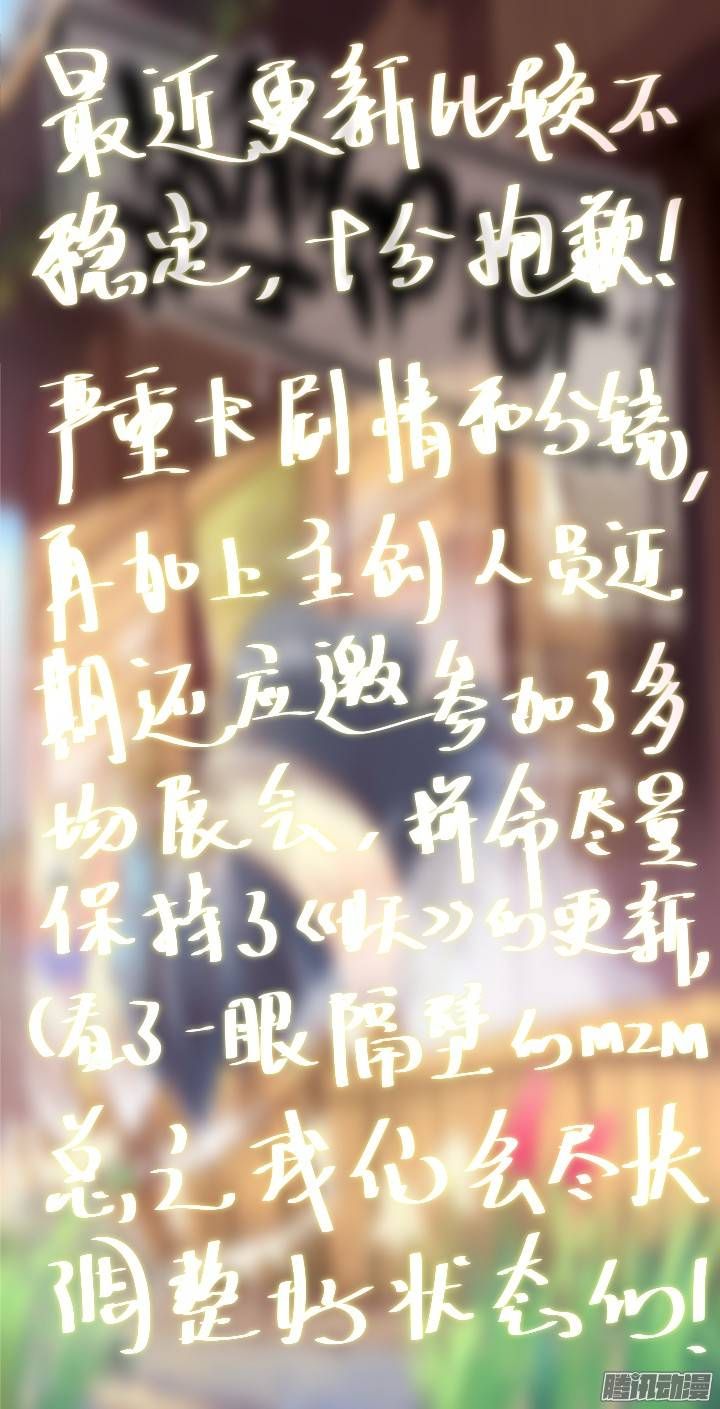 最近更新比较不
稳定,十分抱歉!
严重卡剧情和分镜,
再加上主创人员近
期还应邀参加了多
场展会,拼命尽量
保持了《妖》的更新,
(看了一眼隔壁的MZM
总之我们会尽快
调整好状态的!
腾讯动漫